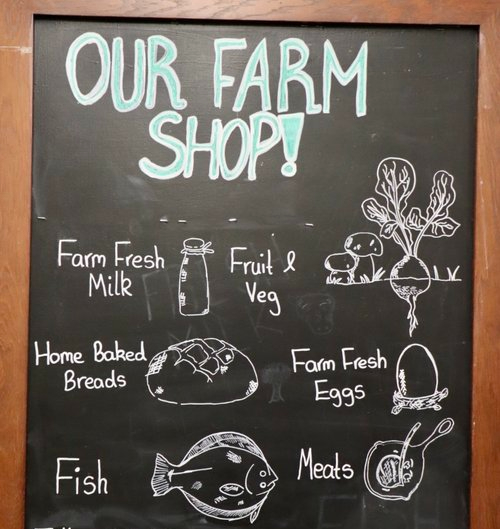 OUR FARM
SHOP!
Farm Fresh
Milk
Fruit &
Veg
Home Baked
Breads
Farm Fresh
Eggs
Fish
Meats